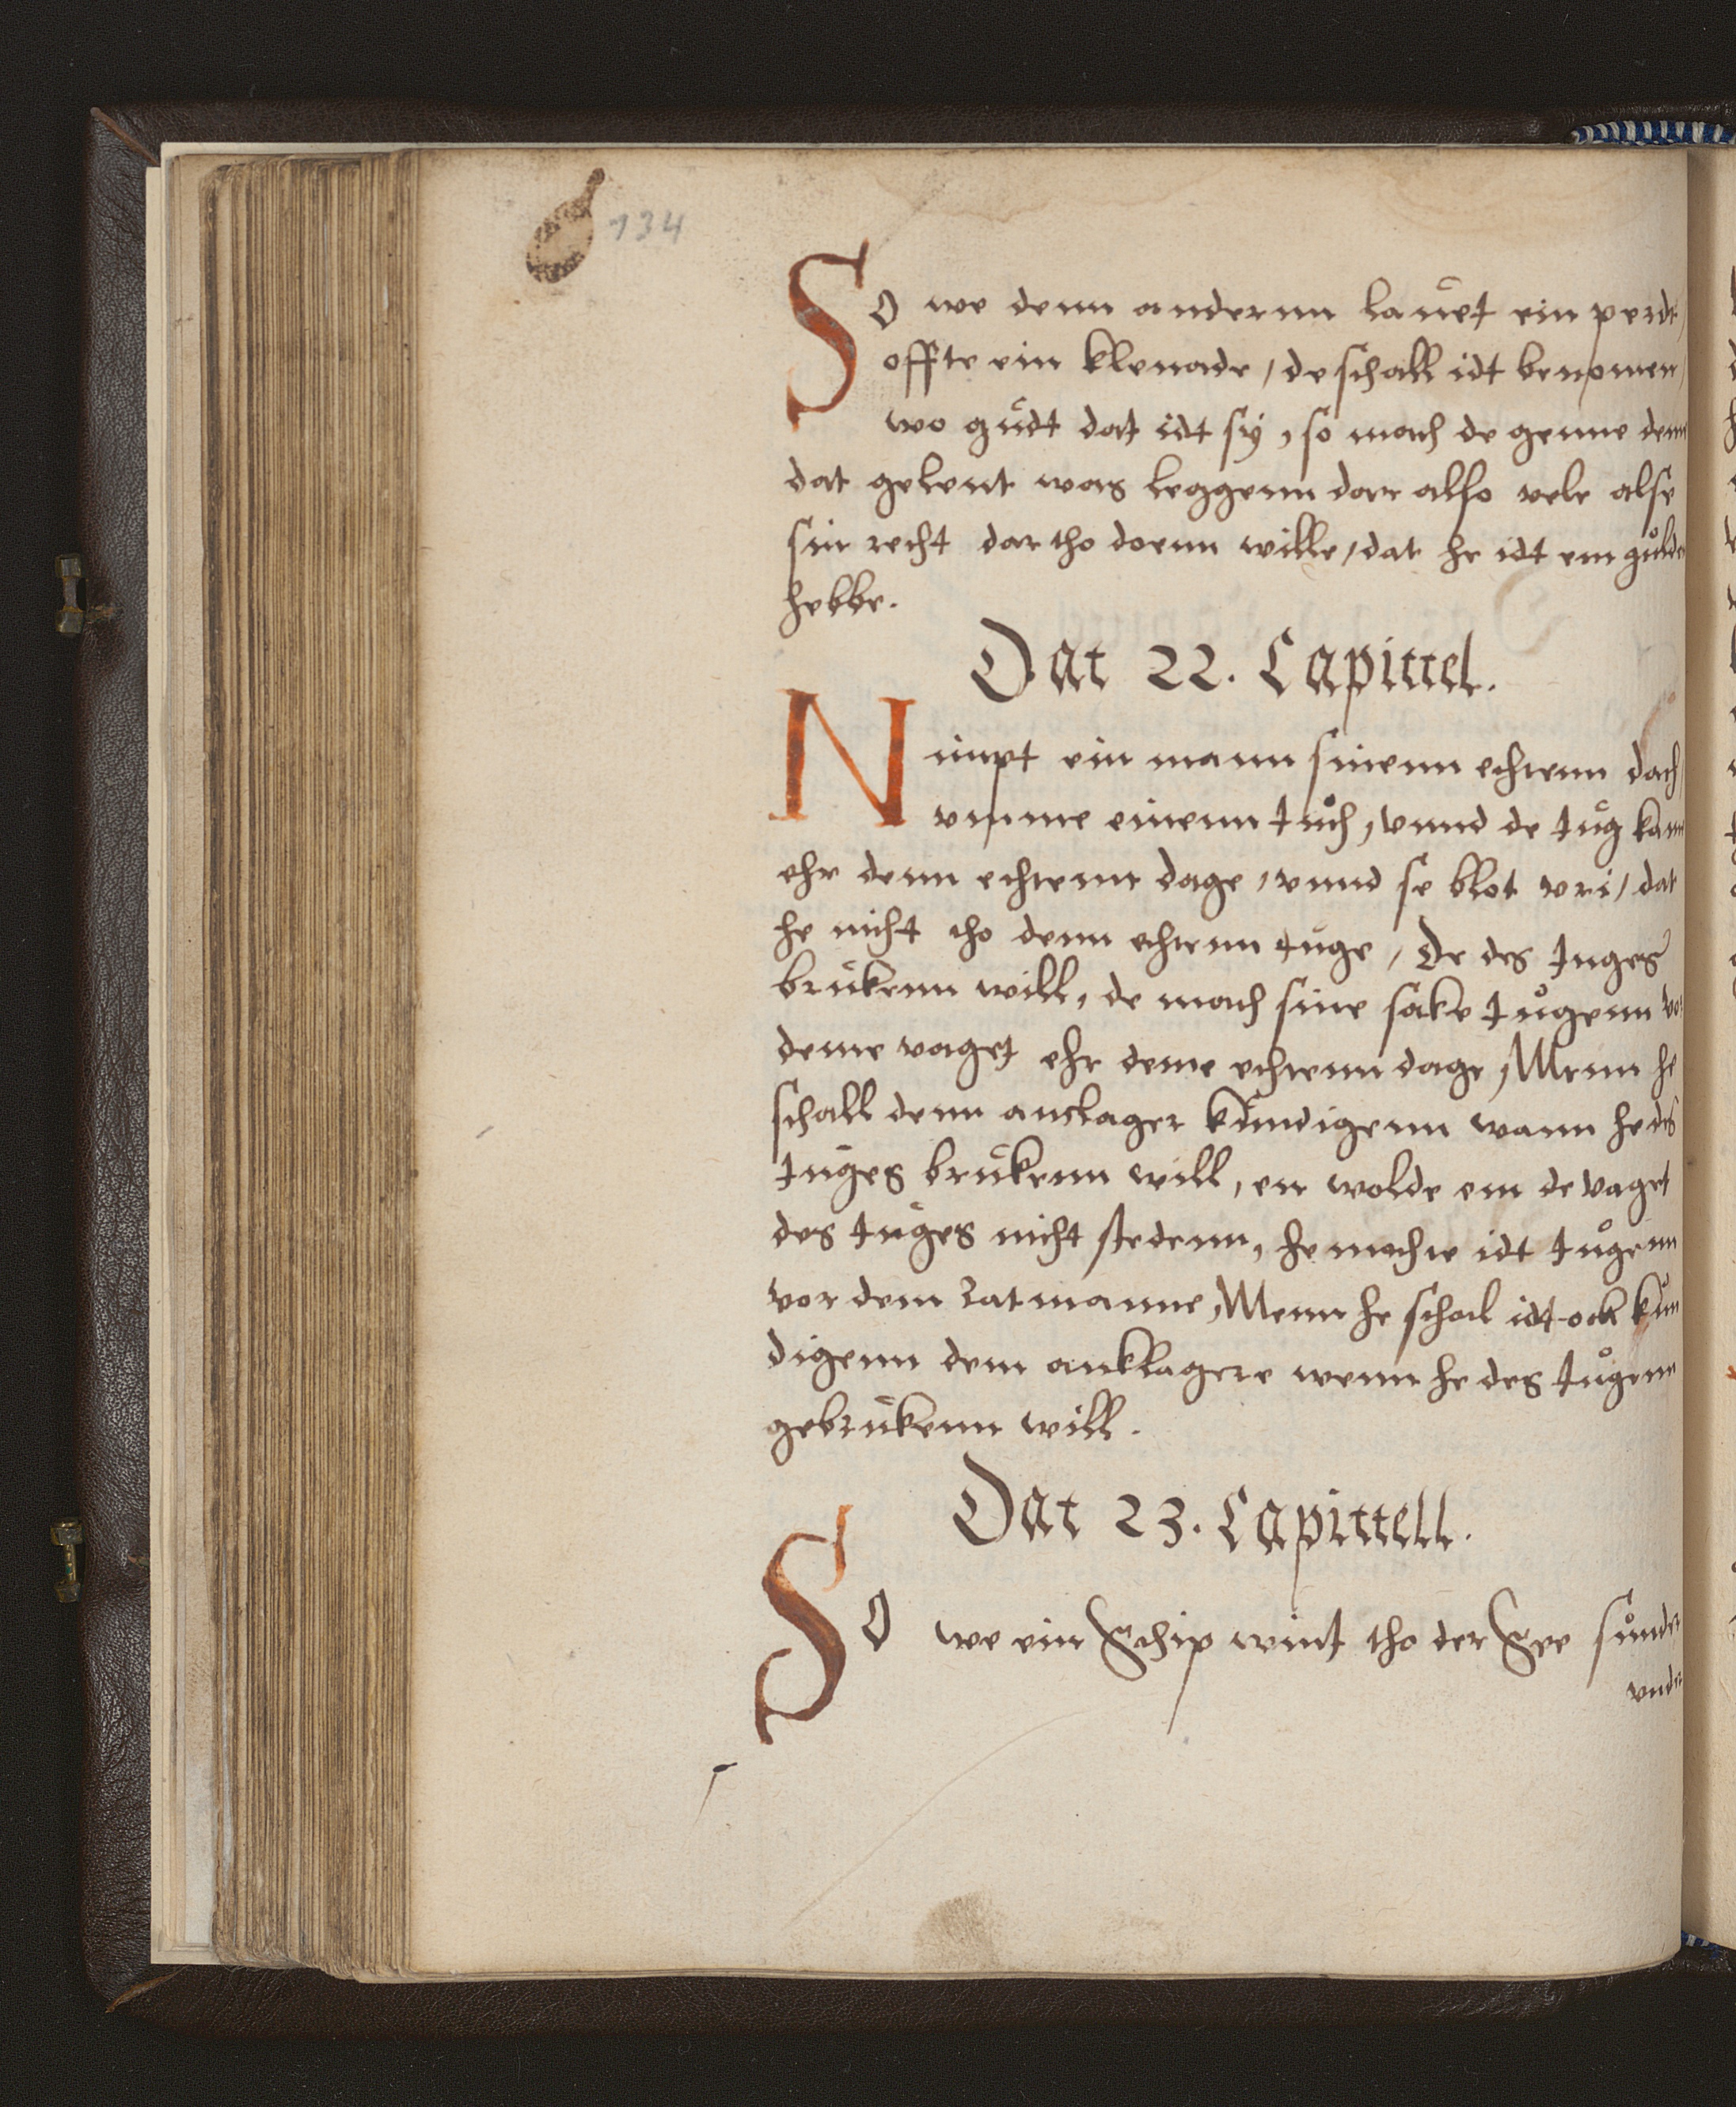 134
So we denn andernn lauet ein perdt,
offte ein klenade, de schall idt benomen,
wo gudt dat idt sy, so mach de genne denn
dat gelent was leggenn dar also vele alse
sin recht dar tho doenn wille, dat he idt em gulde
hebbe.
Dat 22. Capittel.
Nimpt ein mann sinenn echtenn dach,
vmme einenn tuch, vnnd de tug kam
ehr denn echtenn dage, vnnd se blot vri, dat
he nicht tho denn echtenn tuge, De des tuges
brukenn will, de mach sine sake tugenn vor
deme vaget ehr deme echtenn dage, Menn he
schall denn anclager kundigenn wann he des
tuges brukenn will, en wolde em de vaget
des tuges nicht stedenn, he machte idt tugenn
vor dem ratmanne, Menn he schal idt ock kun
digenn dem anklagere wenn he des tugenn
gebrukenn will.
Dat 23. Capittell.
So we ein Schip wint tho der See sunder
vnder